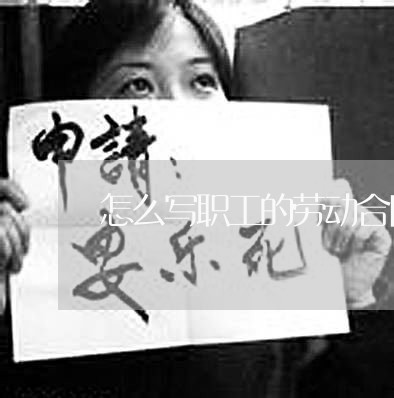 申請：
怎么写职工的劳动合
安乐死